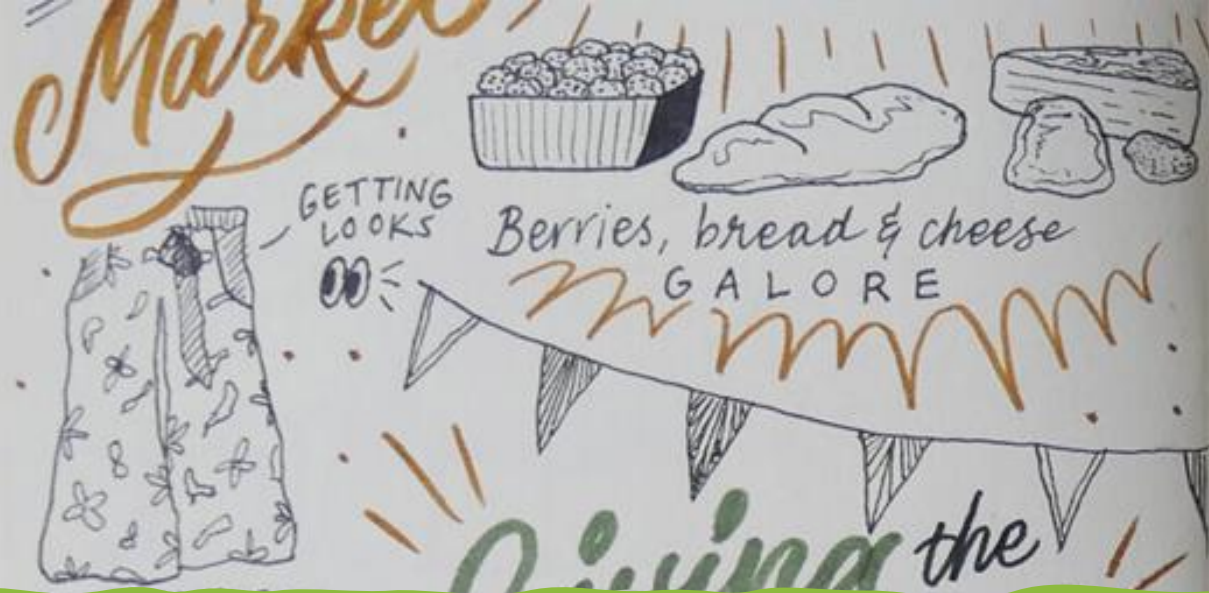 Market
GETTING
LOOKS
Berries, bread & cheese
GALORE
Giving the